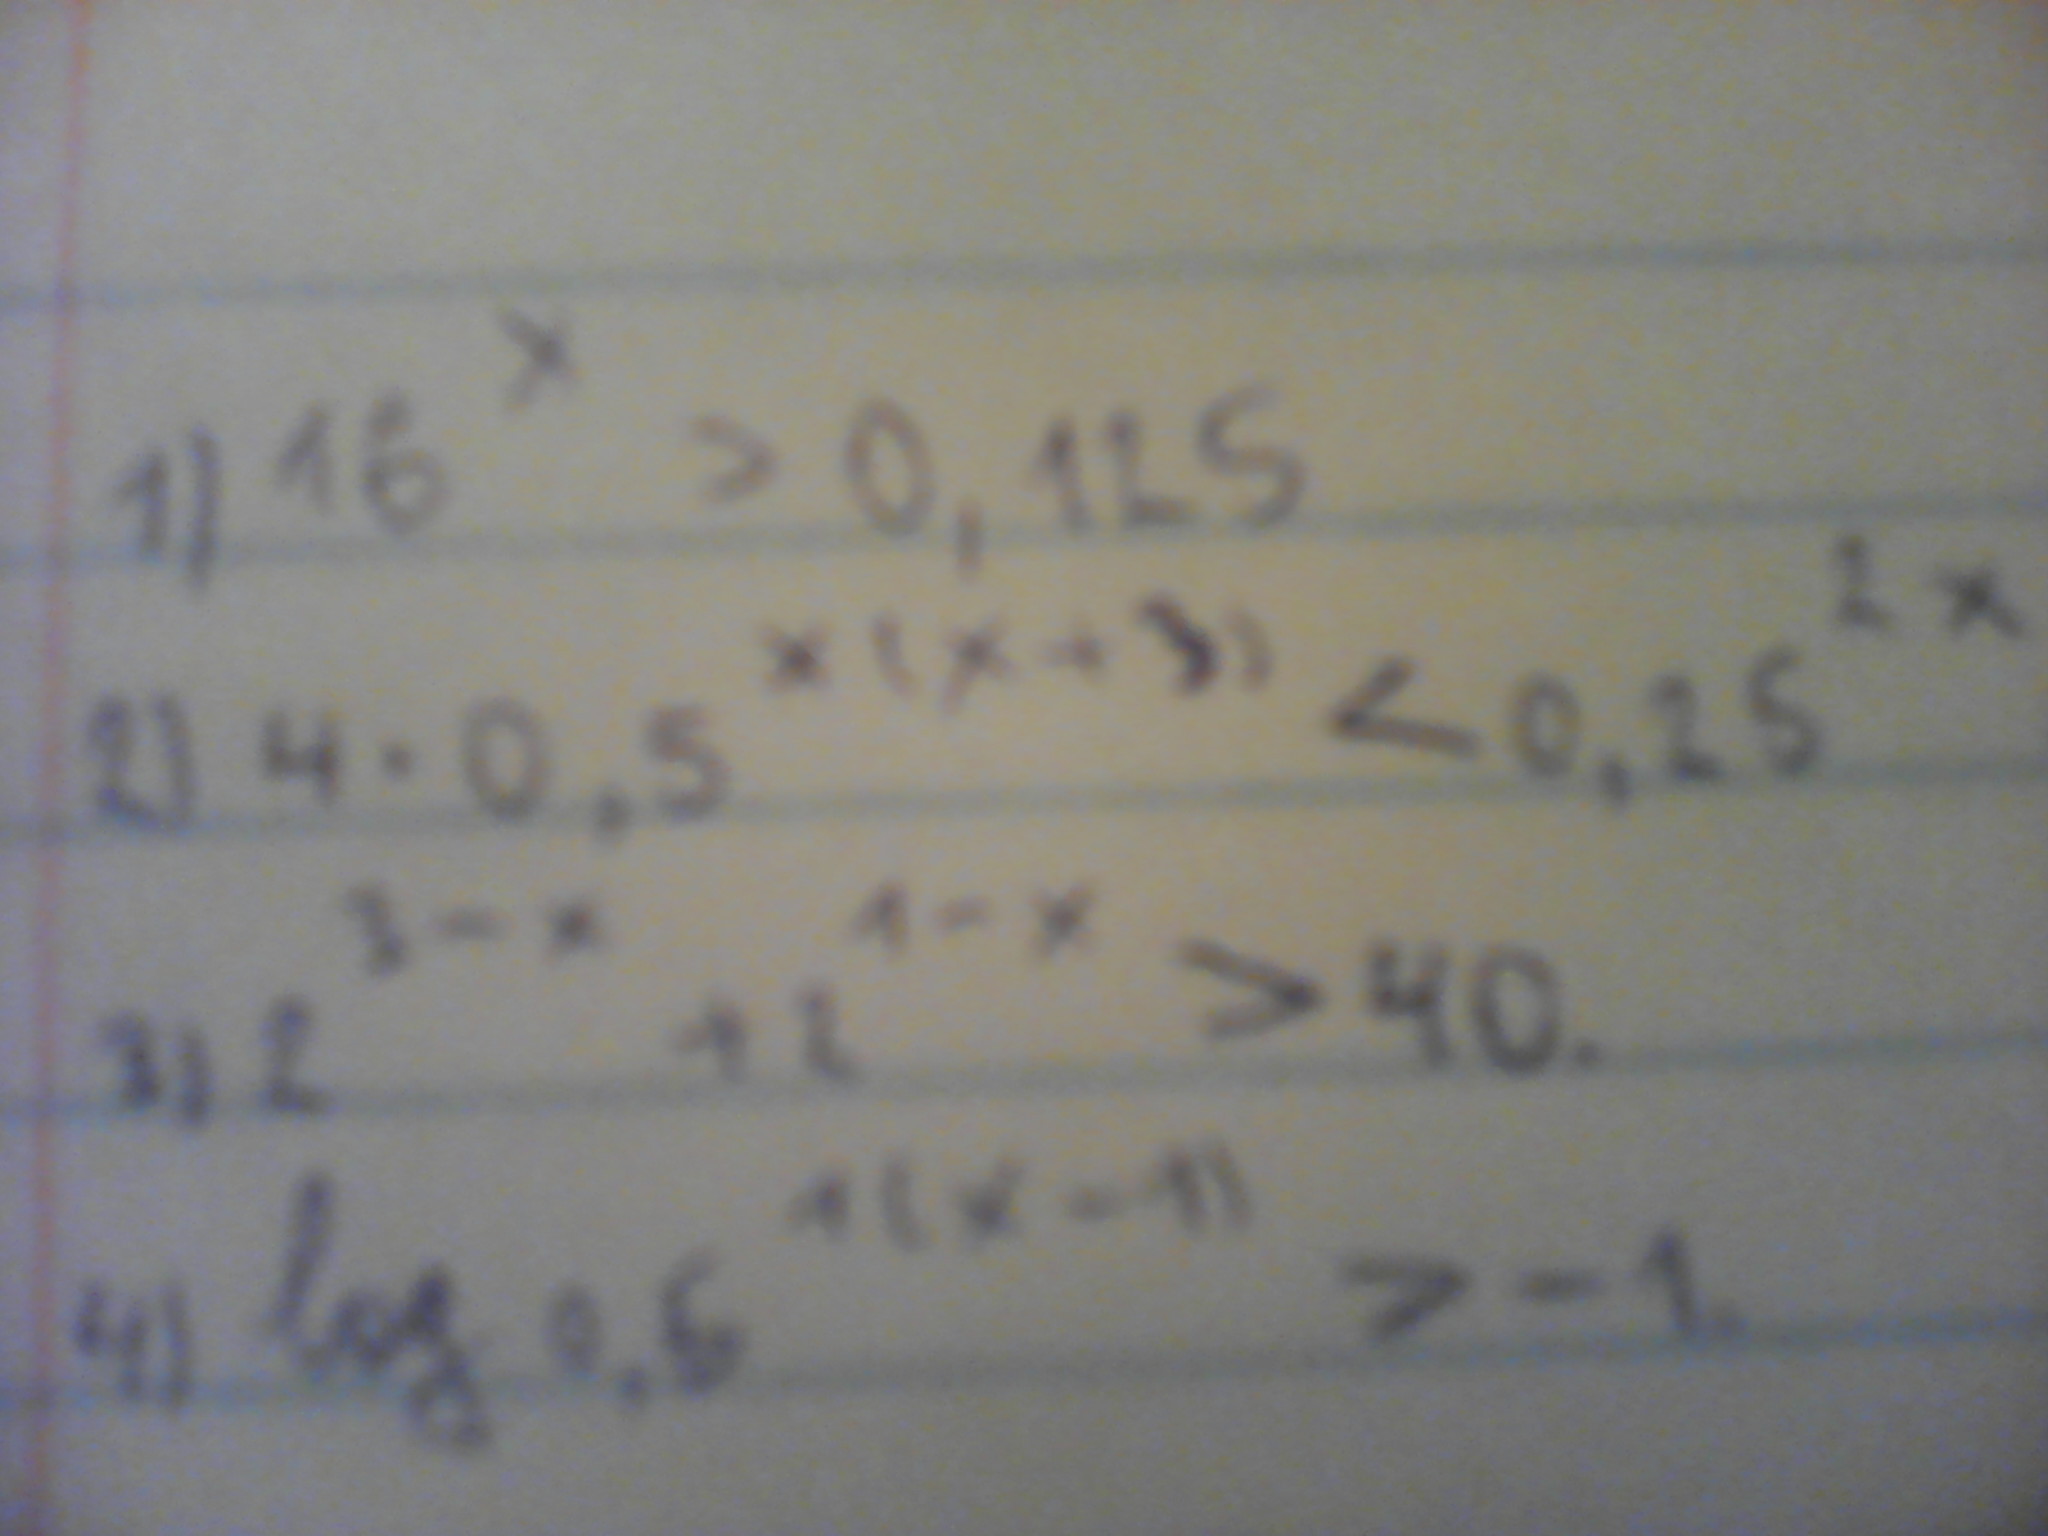 1) 16^x > 0,125
2) 4 · 0,5^x(x+3) < 0,25^2x
3) 2^3-x 12^1-x > 40.
4) log 0,6^1(x-1) > -1.